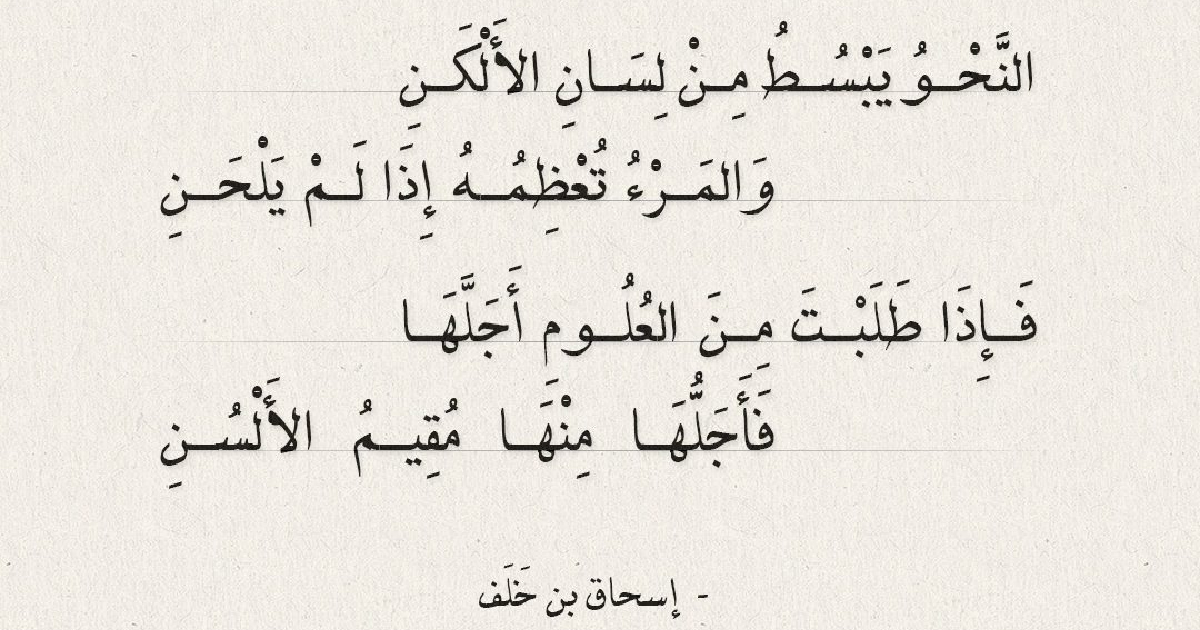 النَّحْـوُ يَبْسُـطُ مِـنْ لِسَـانِ الأَلْكَـنِ
وَالمَـرْءُ تُعْظِمُـهُ إِذَا لَـمْ يَلْحَـنِ
فَـإِذَا طَلَبْـتَ مِـنَ العُلُـومِ أَجَلَّهَـا
فَأَجَلُّهَـا مِنْهَـا مُقِيـمُ الأَلْسُـنِ
- إسحاق بن خَلَف